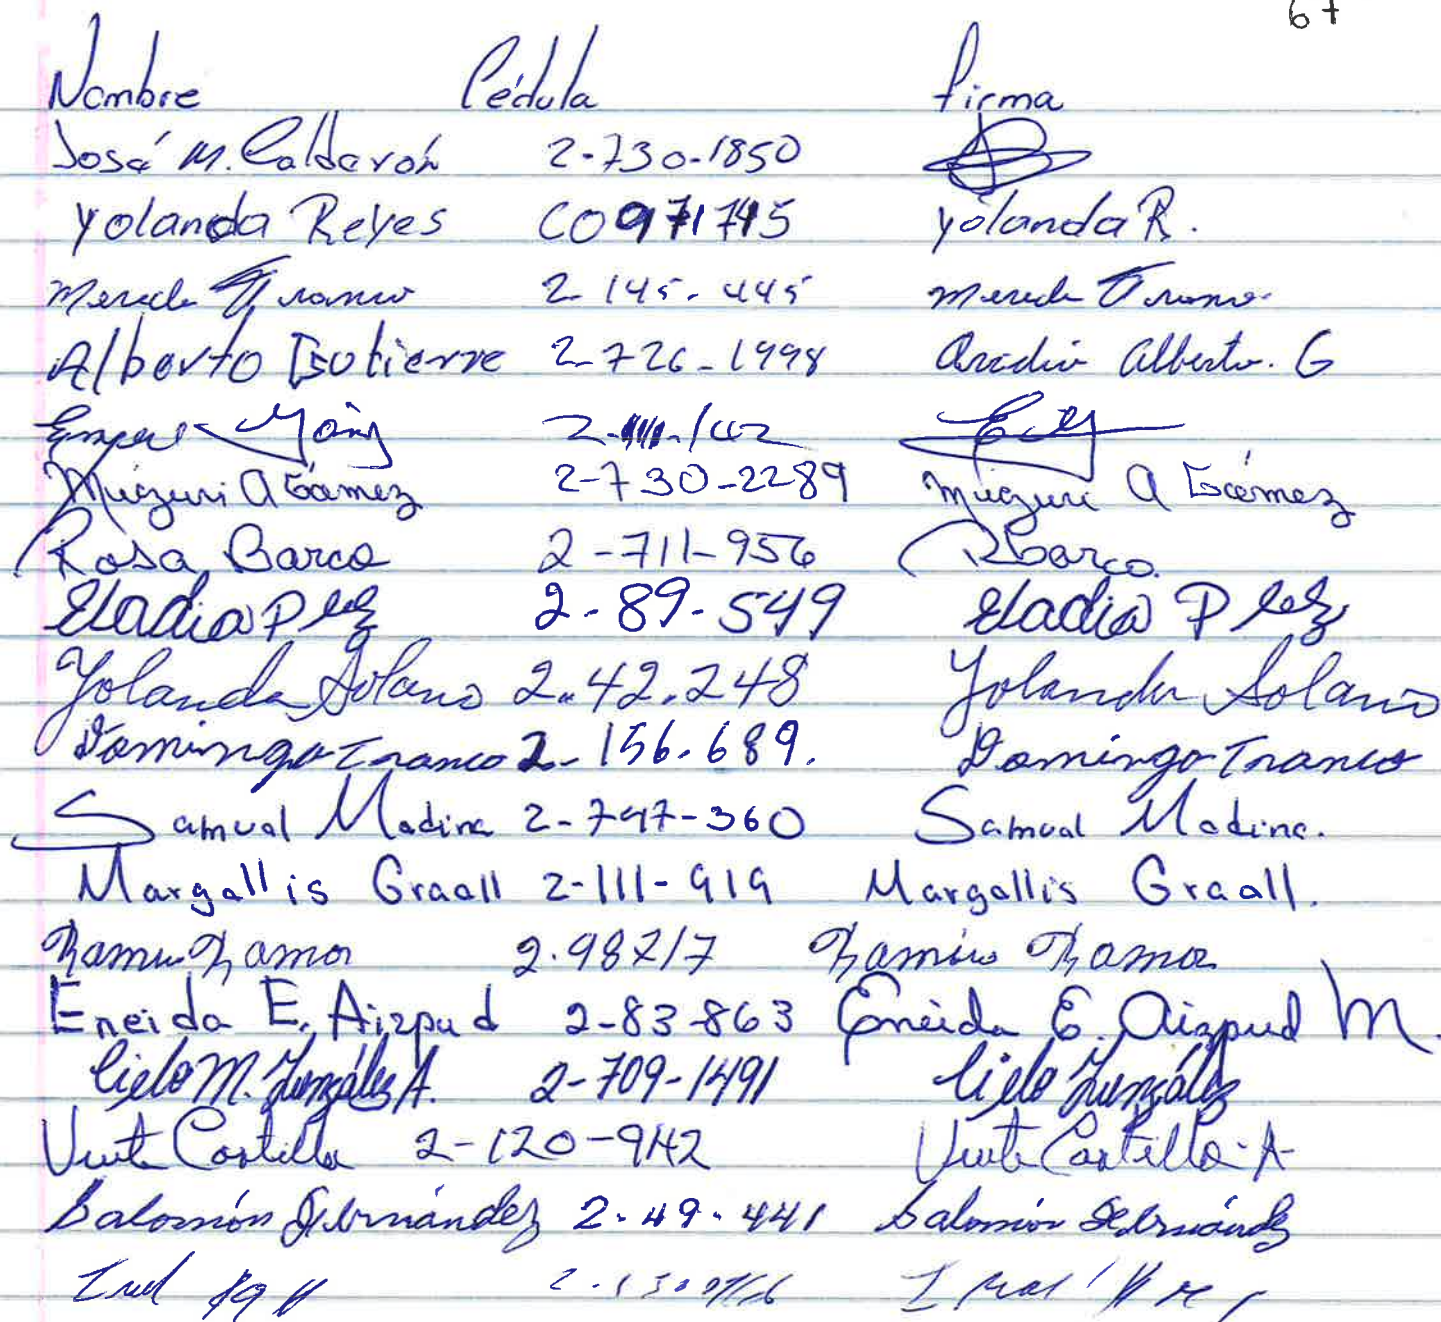 67
Nombre Cédula firma
José M. Calderón 2-730-1850
Yolanda Reyes CO971745 Yolanda R.
Franco 2-145-445
Alberto Gutierre 2-726-1998 Alberto. G
2- -142
A Gámez 2-730-2289 A Gámez
Rosa Barco 2-711-956 RBarco.
Eladia P 2-89-549 Eladia P
Yolanda Solano 2.42.248 Yolanda Solano
Domingo Franco 2-156.689. Domingo Franco
Samuel Madina 2-747-360 Samuel Madina.
Margallis Graell 2-111-919 Margallis Graell.
Ramos 2.98217 Ramiro Ramos
Eneida E. Aizpud 2-83-863 Eneida E. Aizpud M.
Cielo M. González A. 2-709-1491 Cielo González
Castillo 2-120-942 Castillo A
Salomón Hernández 2-49-441 Salomón Hernández